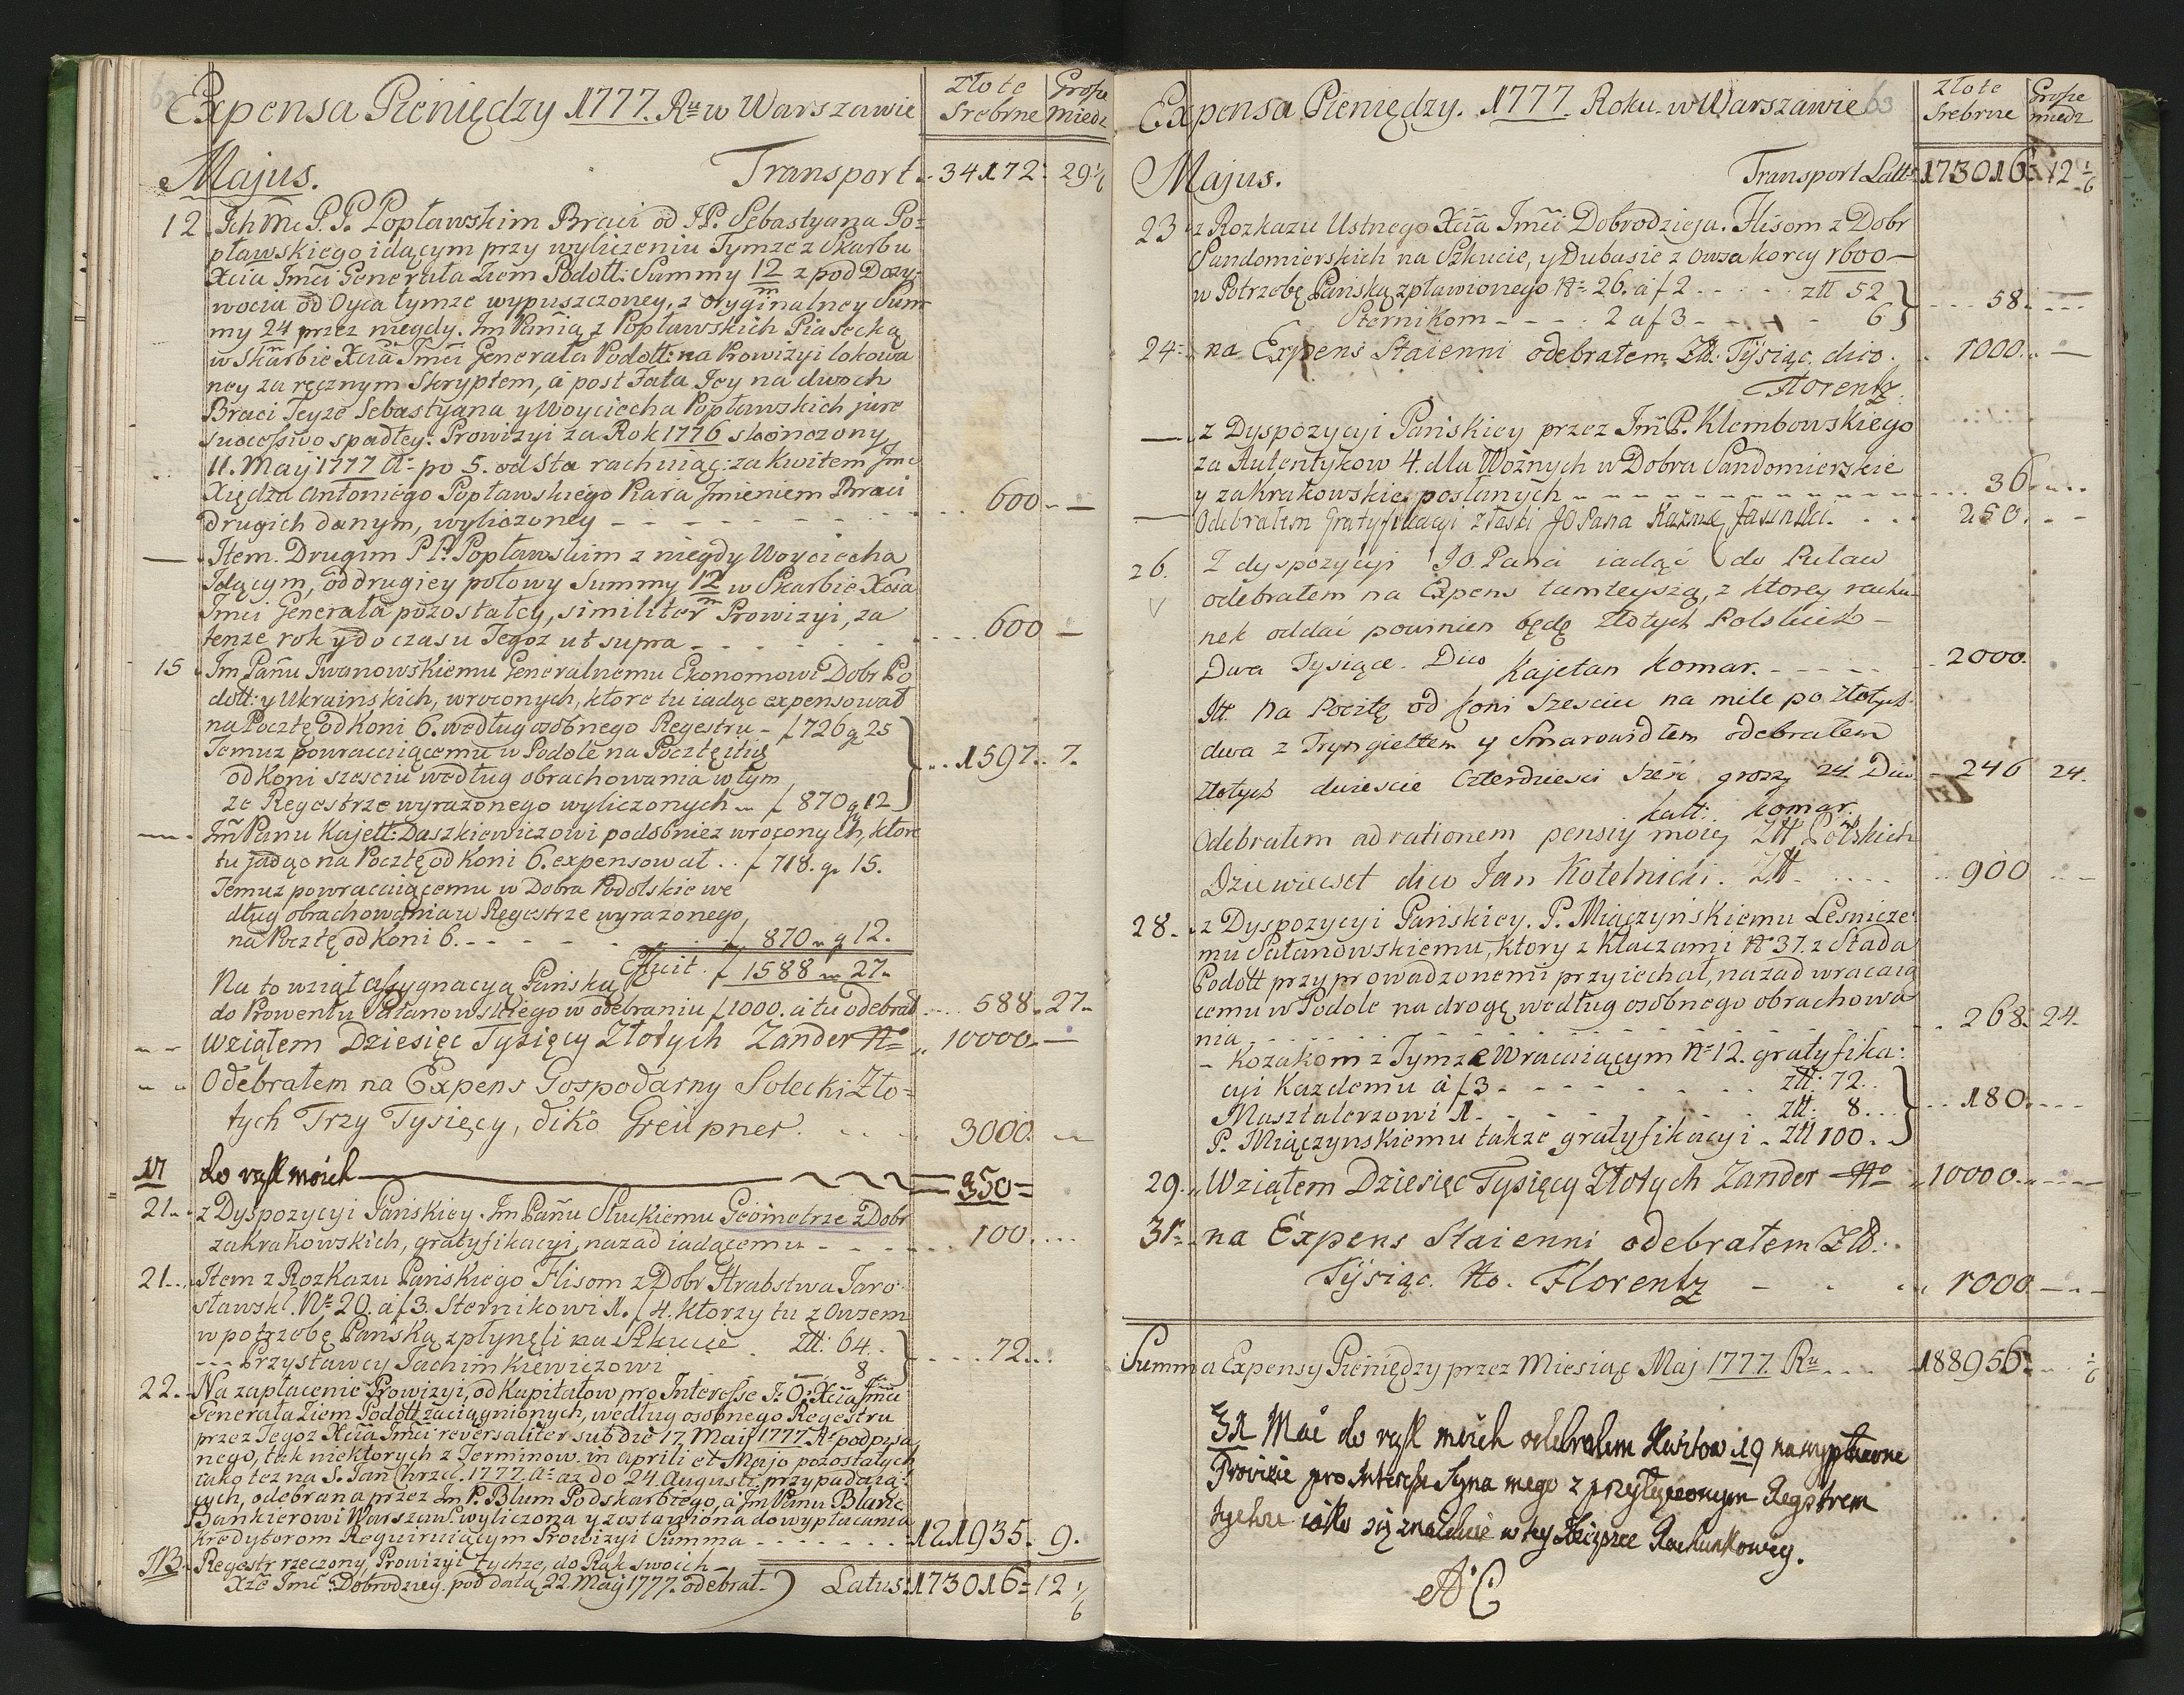 Expensa Pieniędzy 1777. Ru w Warszawie
Złote Srebrne
Grosze miedz
Majus.
Transport .. 34172: 29 1/6
12. Ich Mć P.P. Popławskim Braci od JP. Sebastyana Po=
pławskiego idącym przy wyliczeniu Tymze z Skarbu
Xcia Jmći Generała Ziem Podoll: Summy 12/m z pod Dozy-
wocia od Oyca tymze wypuszczoney, z oryginalney Sum
my 24/m przez niegdy. Jm Panią z Popławskich Piasecką
w Skarbie Xcia Jmći Generała Podoll: na Prowizyi lokowa
ney za ręcznym Skryptem, a post Fata Jey na dwoch
Braci Teyze Sebastyana y Woyciecha Popławskich jure
successivo spadłey. Prowizyi za Rok 1776 skończony
11. Maij 1777 A= po 5. od Sta rachuiąc: za Kwitem Jmć
Xiędza Antoniego Popławskiego Piara Jmieniem Braci
drugich danym, wyliczoney - - - - - 600 - -
— Item. Drugim P P. Popławskim z niegdy Woyciecha
Idącym, od drugiey połowy Summy 12/m w Skarbie Xcia
Jmći Generała pozostałey, similiter Prowizyi, za
tenze rok y do czasu Tegoz ut supra - - - - 600 —
15. Jm Panu Jwanowskiemu Generalnemu Ekonomowi Dobr Po
doll: y Ukrainskich, wroconych, ktore tu iadąc expensował
na Pocztę od Koni 6. według osobnego Regestru - f 726 g 25
Temuz powracaiącemu w Podole na Pocztę itię
od Koni sześciu według obrachowania w tym
ze Regestrze wyrazonego wyliczonych - f 870 g 12 } .. 1597.. 7.
— Jm Panu Kajett: Daszkiewiczowi podobniez wroconych, ktore
tu jadąc na Pocztę od Koni 6. expensował .. f 718. g. 15.
Temuz powracaiącemu w Dobra Podolskie we
dług obrachowania w Regestrze wyrazonego,
na Pocztę od Koni 6. - - - - f 870 " g 12.
Efficit. f 1588 " 27.
Na to wziął assygnacyą Pańską
do Prowentu Satanowskiego w odebraniu f 1000. a tu odebrał ... 588. 27.
Wziąłem Dziesięc Tysięcy Złotych Zander 10000. —
Odebrałem na Expens Gospodarny Solecki Zło=
tych Trzy Tysięcy, diko Greüpner. . . . 3000. —
17 do rąk moich 350=
21. z Dyspozycyi Pańskiey. Jm Panu Słuckiemu Geometrze z Dobr
zakrakowskich, gratyfikacyi, nazad iadącemu - - - 100. ...
21. Item z Rozkazu Pańskiego Flisom z Dobr Hrabstwa Jaro-
sławskl. No 20. a f 3. Sternikowi 1. f 4. Ktorzy tu z Owsem
w potrzebę Pańską zpłynęli na Szkucie . Złł: 64.
- - - Przystawcy Jachimkiewiczowi 8 } . . . . 72...
22. Na zapłacenie Prowizyi, od Kapitałow pro Interesse J: O: Xcia Jmći
Generała Ziem Podoll zaciągnionych, według osobnego Regestru
przez Tegoz Xcia Jmći reversaliter sub die 17. Maij 1777. A= podpisa
nego, tak niektorych z Terminow in Aprili et Majo pozostałych
iako też na S. Jan Chrzcl. 1777. A= az do 24. Augusti przypadaią-
cych, odebrana przez Jm P. Blum Podskarbiego, a Jm Panu Blanc
Bankierowi Warszaw: wyliczona y zostawiona do wypłacania
Kredytorom Requiruiącym Prowizyi Summa - - - - - 121935. 9.
NB. Regestr rzeczony Prowizyi tychze, do Rąk swoich —
Xże Jmć Dobrodziey. pod datą 22 Maij 1777. odebrał.
Latus: 173016= 12 1/6
63
Expensa Pieniędzy. 1777. Roku. w Warszawie
Złote Srebrne
Grosze miedz
Majus.
Transport Latt: 173016: 12 1/6
23 z Rozkazu Ustnego Xcia Jmći Dobrodzieja. Flisom z Dobr
Sandomierskich na Szkucie, y Dubasie z owsa korcy 1600 —
w Potrzebę Pańską zpławionego No 26. a f 2 - - - - złł 52
Sternikom - - - : 2 a f 3 - - - 6 } . . . 58. ---
24 na Expens Staienni odebrałem Złł: Tysiąc, dico. 1000. —
Florentz.
— z Dyspozycyi Pańskiey przez Jm P. Klembowskiego
za Autentykow 4. dla Woźnych w Dobra Sandomierskie
y zakrakowskie posłanych - - - - - - - - - 36. ...
— Odebrałem Gratyfikacyi z łaski JO Pana 250. . -
26. Z dyspozycyi JO. Pana iadąć do Puław
odebrałem na Expens tamteyszą, z ktorey rachu-
nek oddać powinien będę Złotych Polskich —
Dwa Tysiące. Dico Kajetan Komar. - - - - - 2000.
Itt. Na Pocztę od koni sześciu na mile po złotych
dwa z Tryngieltem y Smarowidłem odebrałem
złotych dwieście czterdzieści sześć groszy 24. Dico - 246 24.
Katt: Komar.
Odebrałem ad rationem pensiy moiey Złł Polskich
Dziewiecset dico Jan Kotelnicki. Złł. . . . . . 900 . . -
28. z Dyspozycyi Pańskiey. P. Miączyńskiemu Leśnicze-
mu Satanowskiemu, ktory z Klaczami No 37. z Stada
Podoll przyprowadzonemi przyiechał, nazad wracaią
cemu w Podole na drogę według osobnego obrachowa
nia - - - - - - 268. 24.
- Kozakom z Tymze Wracaiącym No 12. gratyfika-
cyi Kazdemu a f 3 - - - - - - - - - Złł: 72.
Masztalerzowi 1. - - - - - - - - Złł: 8...
P. Miączynskiemu takze gratyfikacyi - Złł 100. } . . 180. ---
29. Wziąłem Dziesięc Tysięcy Złotych Zander 10000. ---
31. na Expens Staienni odebrałem Złł:.
Tysiąc. Florentz - . . . 1000 — . -
Summa Expensy Pieniędzy przez Miesiąc Maj 1777. Ru... 188956: . . 1/6
31 Mai do rąk moich odebrałem Kwitow 19 na wypłacone
Prowizie pro Interesse Syna mego z przyłączonym Regestrem
tychze iako się znaiduie w tey Xiążce Rachunkowey.
AC